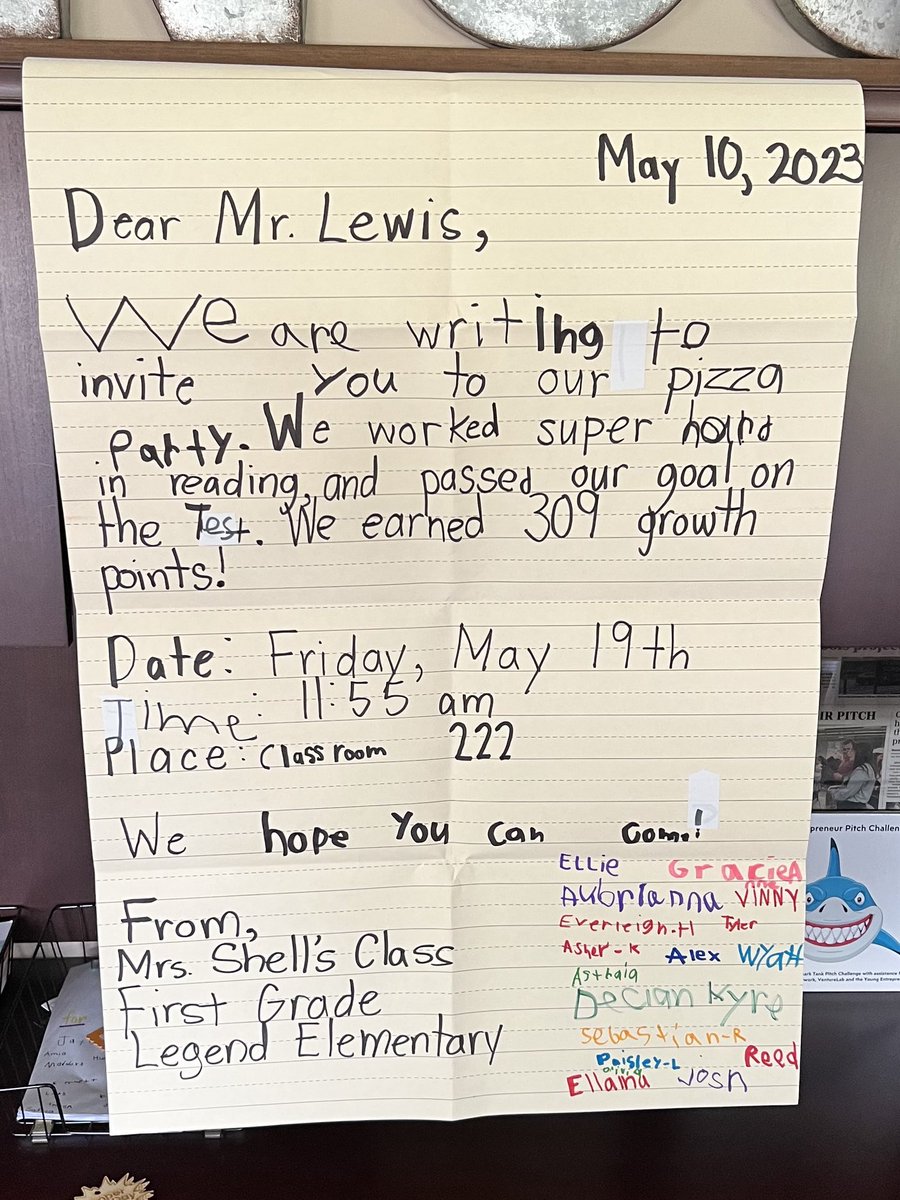 May 10, 2023
Dear Mr. Lewis,
We are writing to
invite you to our pizza
Party. We worked super hard
in reading, and passed our goal on
the Test. We earned 309 growth
points!
Date: Friday, May 19th
Time: 11:55 am
Place: Classroom 222
We hope you can come!
From,
Mrs. Shell's Class
First Grade
Legend Elementary
Ellie
Gracie A
Aubrianna
Vinny
Everleigh-H
Tyler
Asher-K
Alex
Wyatt
Declan
Kyre
Sebastian-R
Paisley-L
Reed
Olivia
Ellaina
Josh
IR PITCH
preneur Pitch Challen
ark Tank Pitch Challenge with assistance f
work, VentureLab and the Young Entrepre
for
Jay